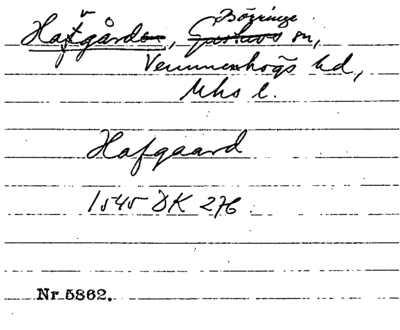 Börringe
Havgården, Gustavs sn,
Vemmenhögs hd,
Mhs l.
Hafgaard
1545 DK 276
Nr 5862.